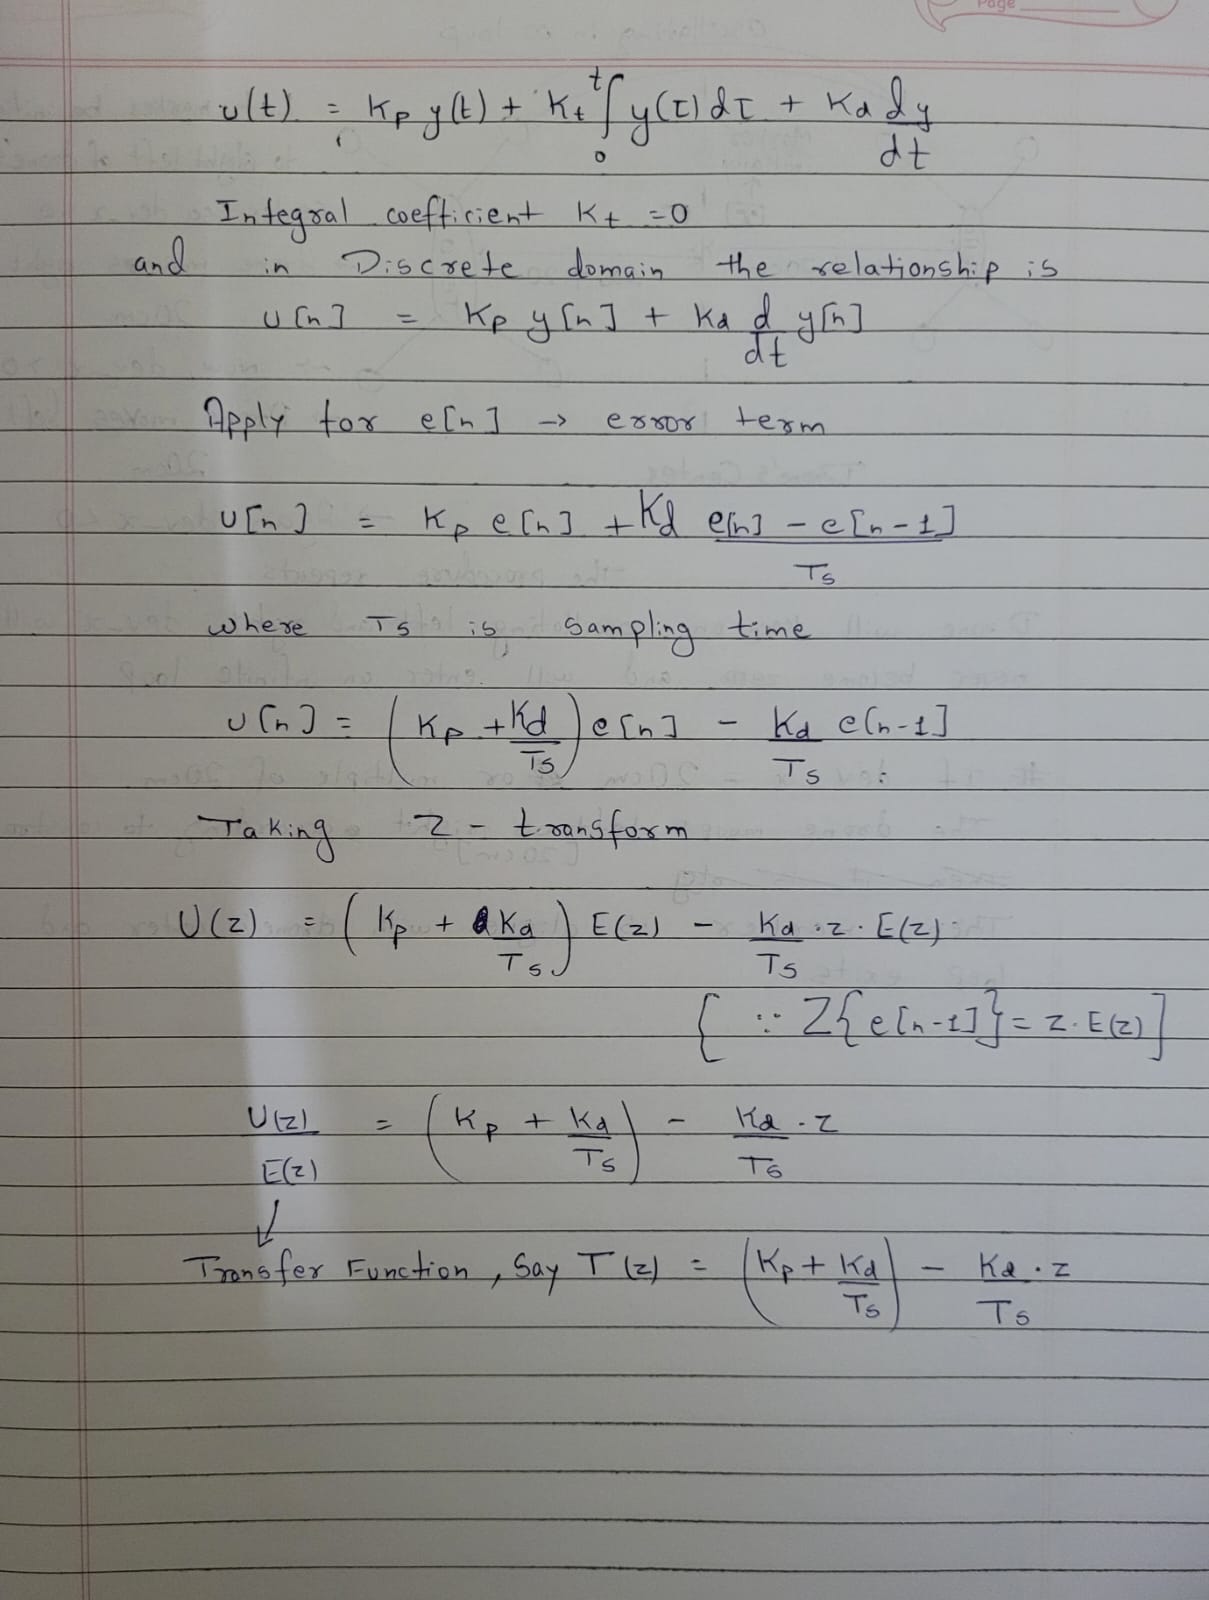 Page
u(t) = Kp y(t) + Kt ∫₀ᵗ y(τ) dτ + Kd dy/dt
Integral coefficient Kt = 0
and in Discrete domain the relationship is
u[n] = Kp y[n] + Kd d/dt y[n]
Apply for e[n] → error term
u[n] = Kp e[n] + Kd (e[n] - e[n-1])/Ts
where Ts is sampling time
u[n] = (Kp + Kd/Ts) e[n] - Kd/Ts e[n-1]
Taking Z - transform
U(z) = (Kp + Kd/Ts) E(z) - Kd/Ts · z · E(z)
[ ∵ Z{e[n-1]} = z · E(z) ]
U(z)/E(z) = (Kp + Kd/Ts) - Kd/Ts · z
↓
Transfer Function, Say T(z) = (Kp + Kd/Ts) - Kd/Ts · z